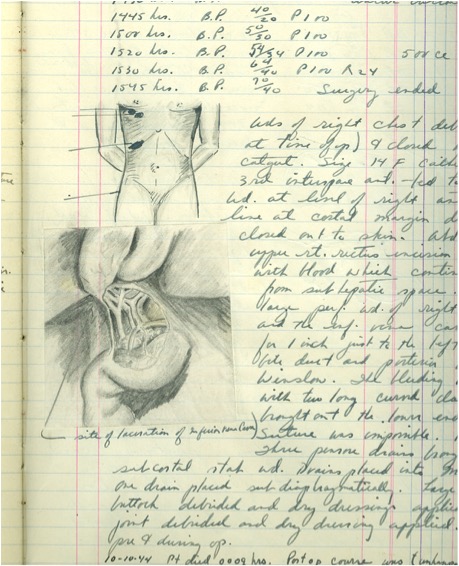 1445 hrs. B.P. 40/20 P100
1500 hrs. B.P. 50/30 P100
1520 hrs. B.P. 54/34 P100 500 cc
1530 hrs. B.P. 64/40 P100 R24
1545 hrs. B.P. 70/40 Surgery ended
Wds of right chest deb
at time of op) & closed
catgut. Size 14 F cath
3rd interspace ant.
wd. at level of right
line at costal margin d
closed out to skin.
upper rt. rectus incision
with blood which conti
from subhepatic space.
large perf. wd. of right
and the inf. vena ca
for 1 inch just to the left
bile duct and posterior
Winslow. The bleeding
with two long curved cla
brought out the lower en
site of laceration of inferior vena cava
Suture was impossible.
Three penrose drains
subcostal stab wd. Drains placed into
one drain placed subdiaphragmatically. Large
buttock debrided and dry dressings applie
joint debrided and dry dressing applied.
pre & during op.
10-10-44 Pt died 0009 hrs. Post op course was